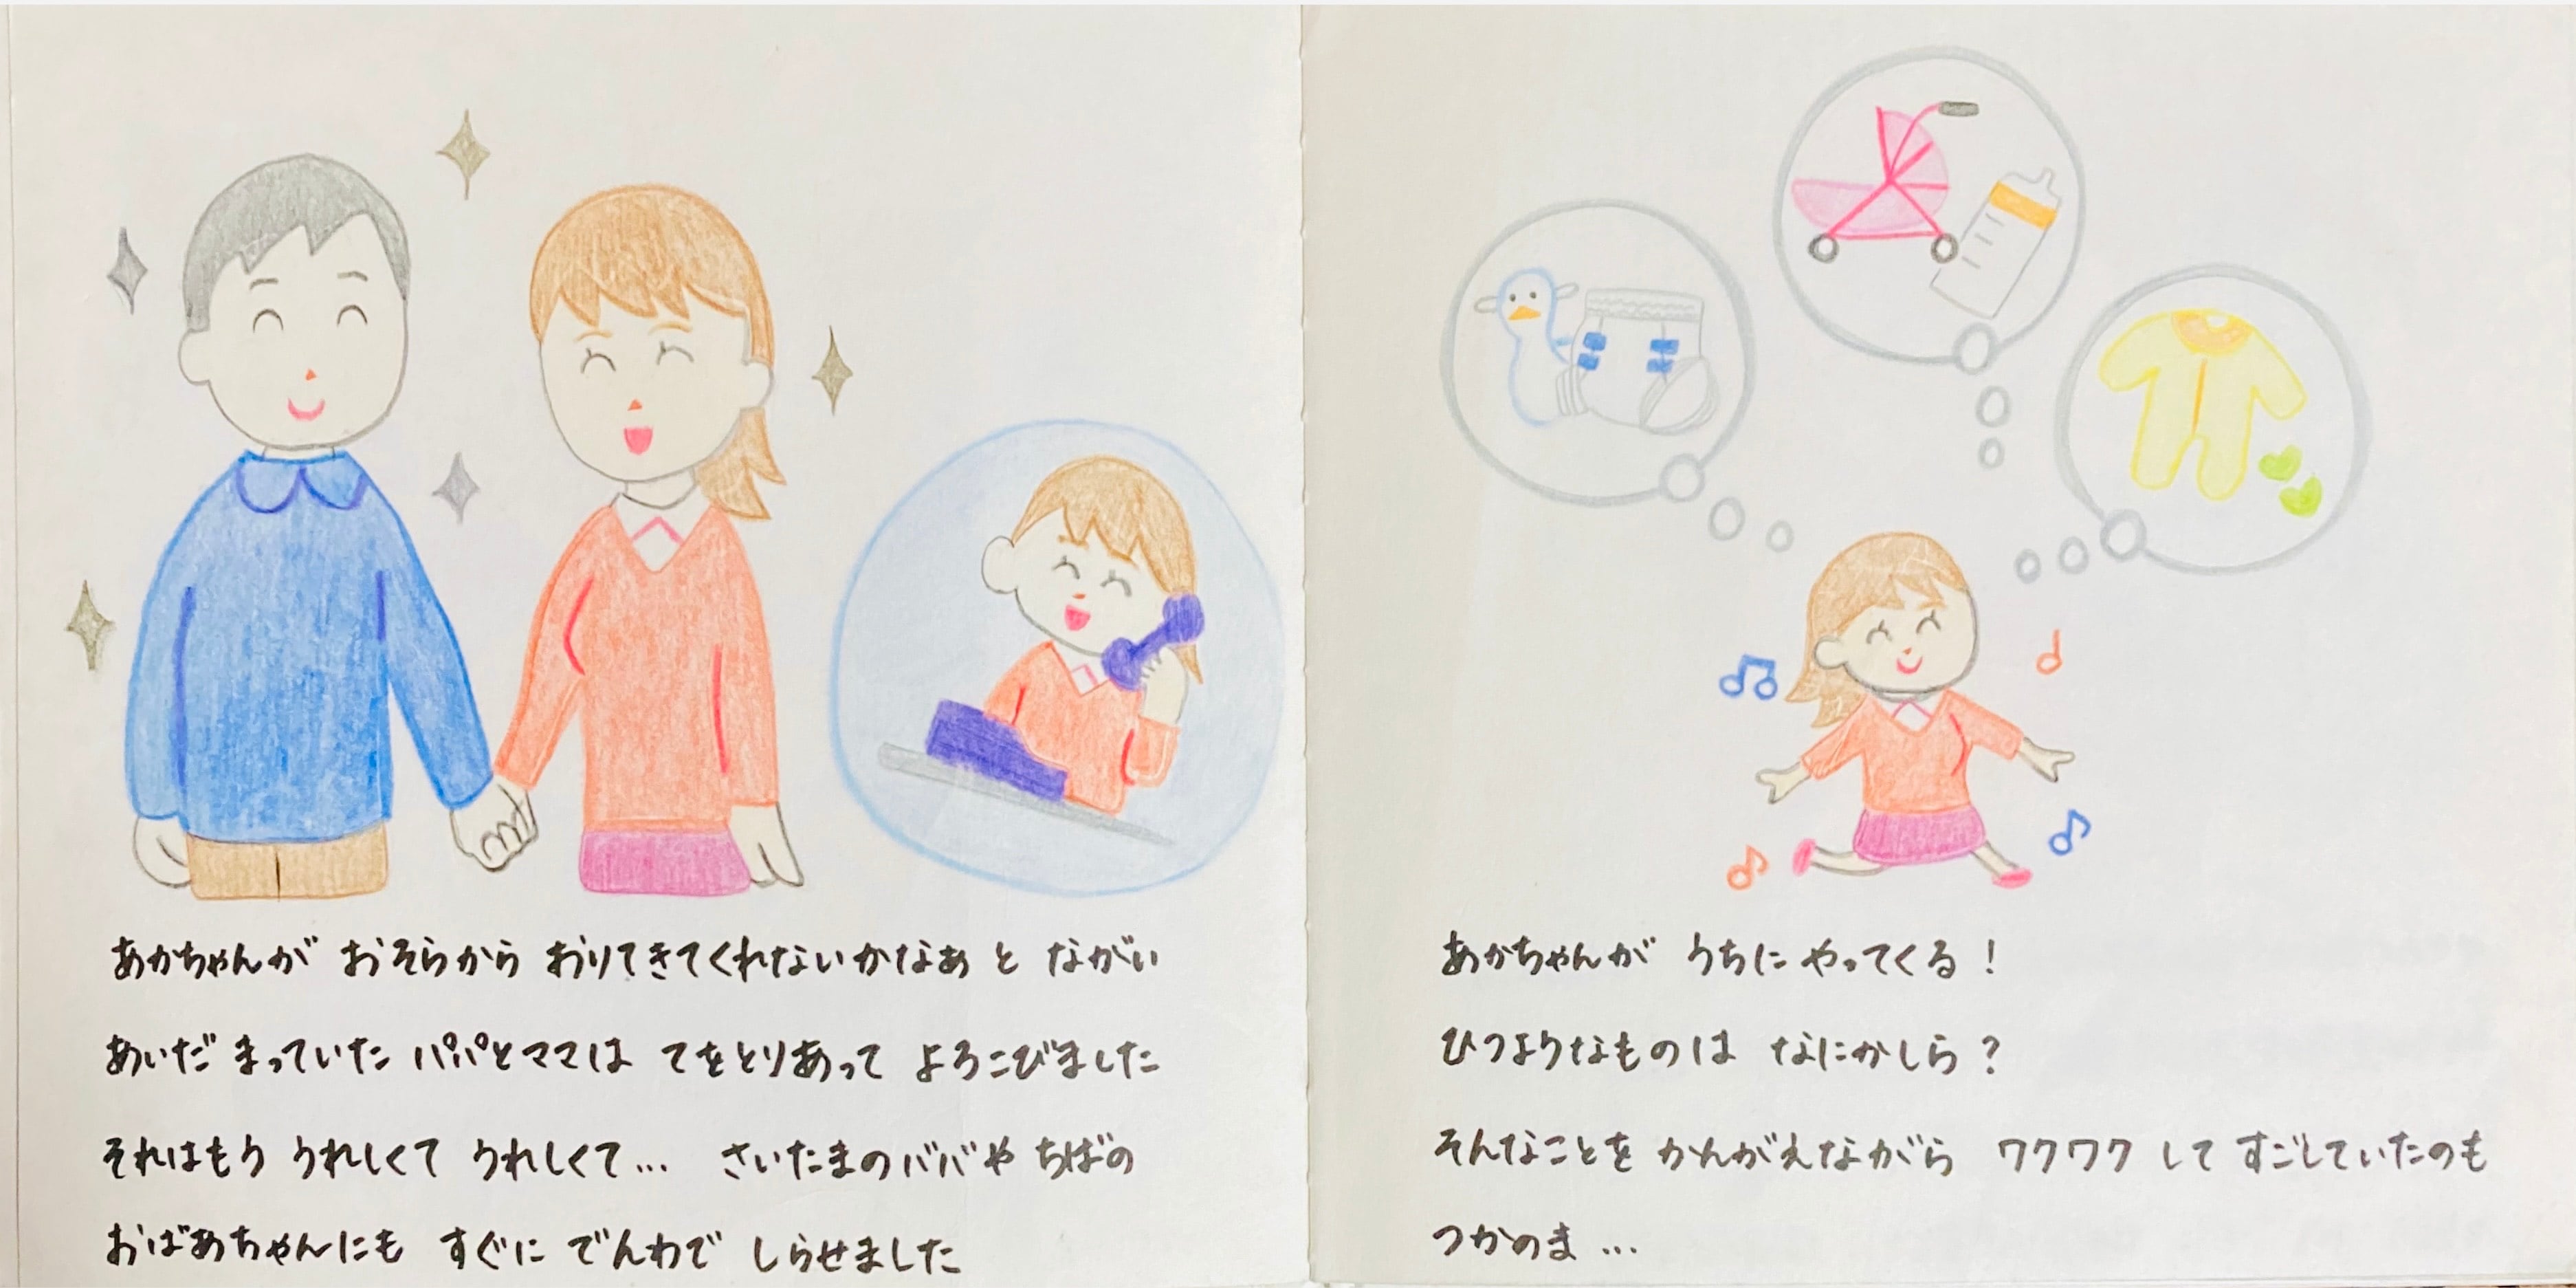 あかちゃんが おそらから おりてきてくれないかなぁ と ながい
あいだ まっていた パパとママは てをとりあって よろこびました
それはもう うれしくて うれしくて… さいたまのババや ちばの
おばあちゃんにも すぐに でんわで しらせました
あかちゃんが うちに やってくる！
ひつようなものは なにかしら？
そんなことを かんがえながら ワクワク して すごしていたのも
つかのま…